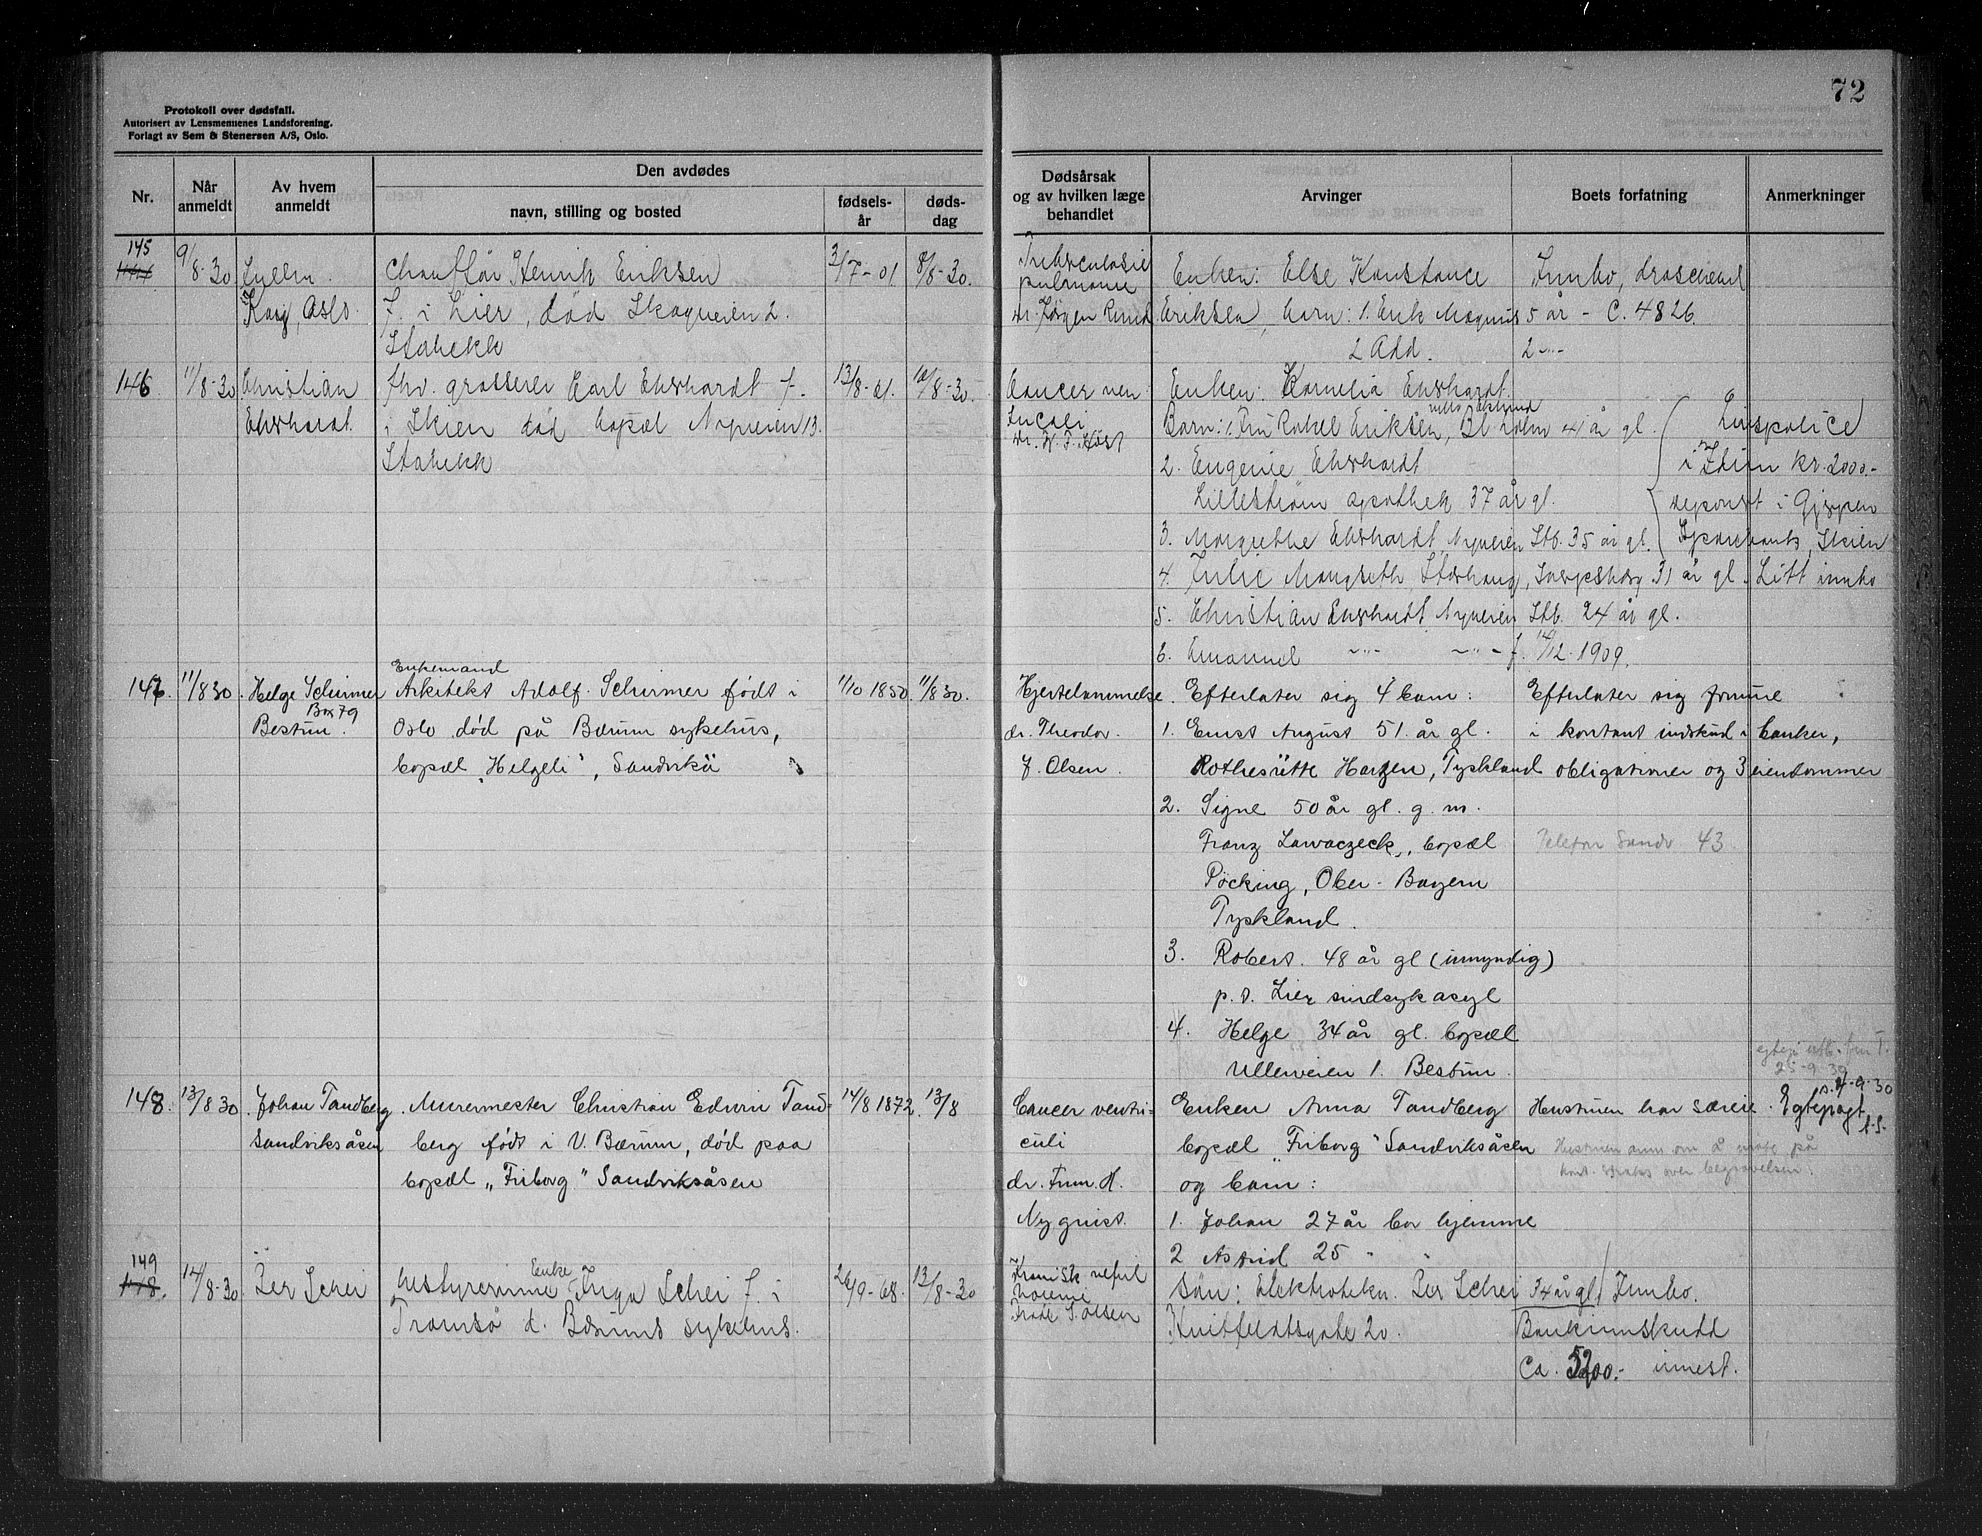 72
Protokoll over dødsfall.
Autorisert av Lensmennenes Landsforening.
Forlagt av Sem & Stenersen A/S, Oslo.
Nr.
Når anmeldt
Av hvem anmeldt
Den avdødes
navn, stilling og bosted
fødsels-år
døds-dag
Dødsårsak og av hvilken læge behandlet
Arvinger
Boets forfatning
Anmerkninger
145
9/8-30
Oslo.
Chauffør Henrik Eriksen
f. i Lier, død Skogveien 2.
Stabekk
3/7-01
8/8-30.
Tuberculosis
pulmonum
dr. Jørgen
Enken: Else Konstance
Eriksen, barn: 1. Erik Magnus 5 år
2 Odd. 2 -"-
Innbo, droschebil
- C. 4826.
146
11/8-30
Christian
Ehrhardt.
fhv. grosserer Carl Ehrhardt f.
i Skien død bopæl Nyveien 13.
Stabekk
13/8-61.
10/8-30.
Cancer ven
dr.
Enken: Kornelia Ehrhardt.
Barn: 1. Fru Rakel Eriksen, 41 år gl.
2. Eugenie Ehrhardt
Lillestrøm apothek 37 år gl.
3. Margrethe Ehrhardt Nyveien Stb. 35 år gl.
4. Julie Mangseth, Størhaug, Sarpsborg 31 år gl.
5. Christian Ehrhardt Nyveien Stb. 24 år gl.
6. Emanuel -"- -"- f. 14/12-1909.
Livspolice
i Idun kr. 2000.-
deponert i Gjerpen
Sparebank, Skien
Litt innbo
147.
11/8 30.
Helge Schirmer
Box 79
Bestun.
Enkemand
Arkitekt Adolf Schirmer født i
Oslo død på Bærum sykehus,
bopæl "Helgeli", Sandvika
1/10 1850.
11/8 30.
Hjertelammelse
dr. Theodor.
F. Olsen.
Efterlater sig 4 barn:
1. Ernst August 51 år gl.
Rothesütte Harzen, Tyskland
2. Signe 50 år gl. g. m.
Franz Lawaczeck, bopæl
Pöcking, Ober-Bayern
Tyskland.
3. Robert. 48 år gl (umyndig)
p. t. Lier sindsykasyl
4. Helge 34 år gl. bopæl
Ullerveien 1. Bestun.
Efterlater sig formue
i kontant indskud i banker,
obligationer og 3 eiendommer
Telefon Sandv 43
148.
13/8 30
Johan Tandberg
Sandviksåsen
Murermester Christian Edvin Tand-
berg født i V. Bærum, død paa
bopæl "Friborg" Sandviksåsen
14/8 1872.
13/8
Cancer ventri-
culi
dr. Finn. H.
Nyquist.
Enken Anna Tandberg
bopæl "Friborg" Sandviksåsen
og barn:
1. Johan 27 år bor hjemme
2 Astrid 25 " "
Hustruen har særeie.
Hustruen anm om å møte på
kont. straks over begravelsen.
25-9-30
4-9-30
Egtepagt
149
14/8-30
Per Schei
Enke
bestyrerinne Inga Schei f. i
Tromsø d. Bærums sykehus.
26/9-68.
13/8-30
Kronisk nefrit
Uræmie
Søn: Elektrotekn. Per Schei 34 år gl
Huitfeldtsgate 20.
Innbo.
Bankinnskudd
Ca. 5200.- innest.